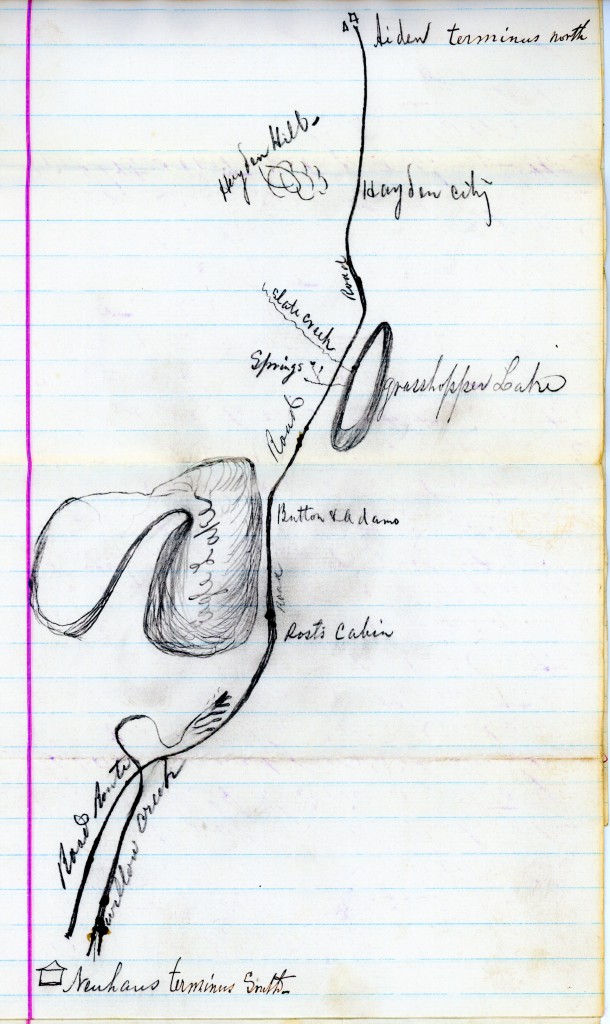 Aiden terminus north
Hayden Hill
Hayden city
Road
Slate creek
Springs
Grasshopper Lake
Road
Button & Adams
Eagle Lake
Road
Rosts Cabin
Road Route
Willow Creek
Neuhaus terminus South